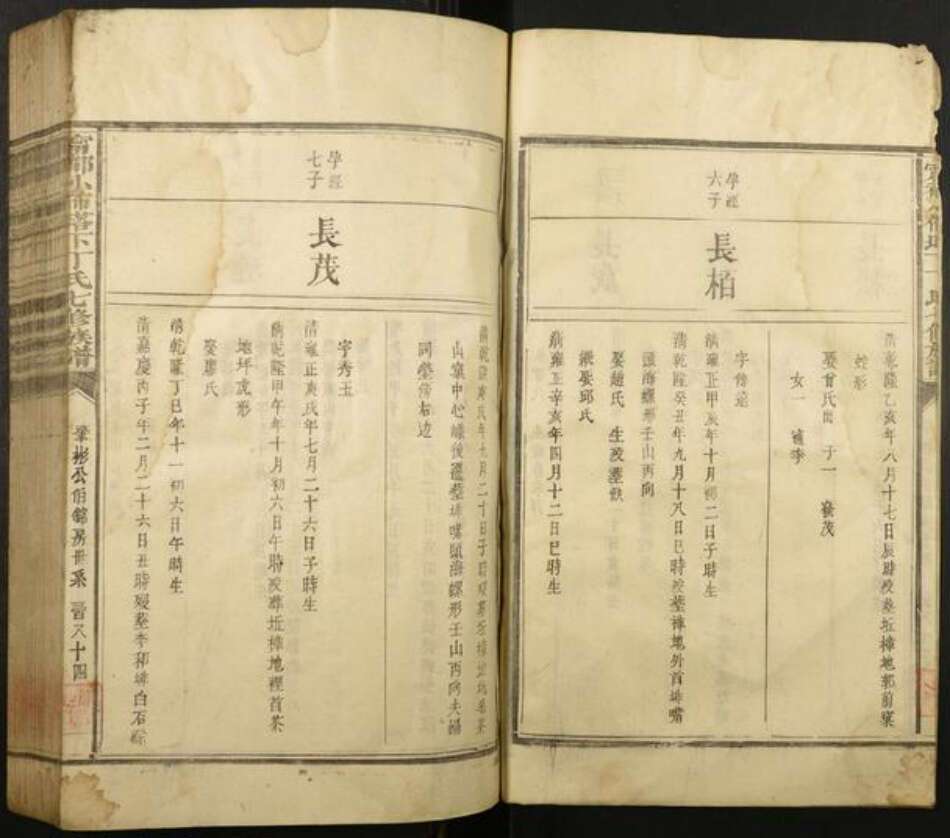 清乾隆乙亥年八月十七日辰時歿葬坵樟地郭前窠
蛇形
娶曾氏 子一 發茂
女一 適李
學涇
六子
長栢
字脩遠
清雍正甲辰年十月初二日子時生
清乾隆癸丑年九月十八日巳時歿葬樟地外首排嘴
頭海螺形壬山丙向
娶趙氏 生歿葬缺
繼娶邱氏
清雍正辛亥年四月十二日巳時生
清乾隆庚戌年九月二十日子時歿葬坵樟地
山窠中心嵊後遷葬排嘴頭海螺形壬山丙向夫婦
同塋傍右邊
學涇
七子
長茂
字秀玉
清雍正庚戌年七月二十六日子時生
清乾隆甲午年十月初六日午時歿葬坵樟地裡首茶
地坪虎形
娶廖氏
清乾隆丁巳年十一初六日午時生
清嘉慶丙子年二月二十六日丑時歿葬李和排白石
丁氏七修族譜
彬公伯錦房世系 晉八十四